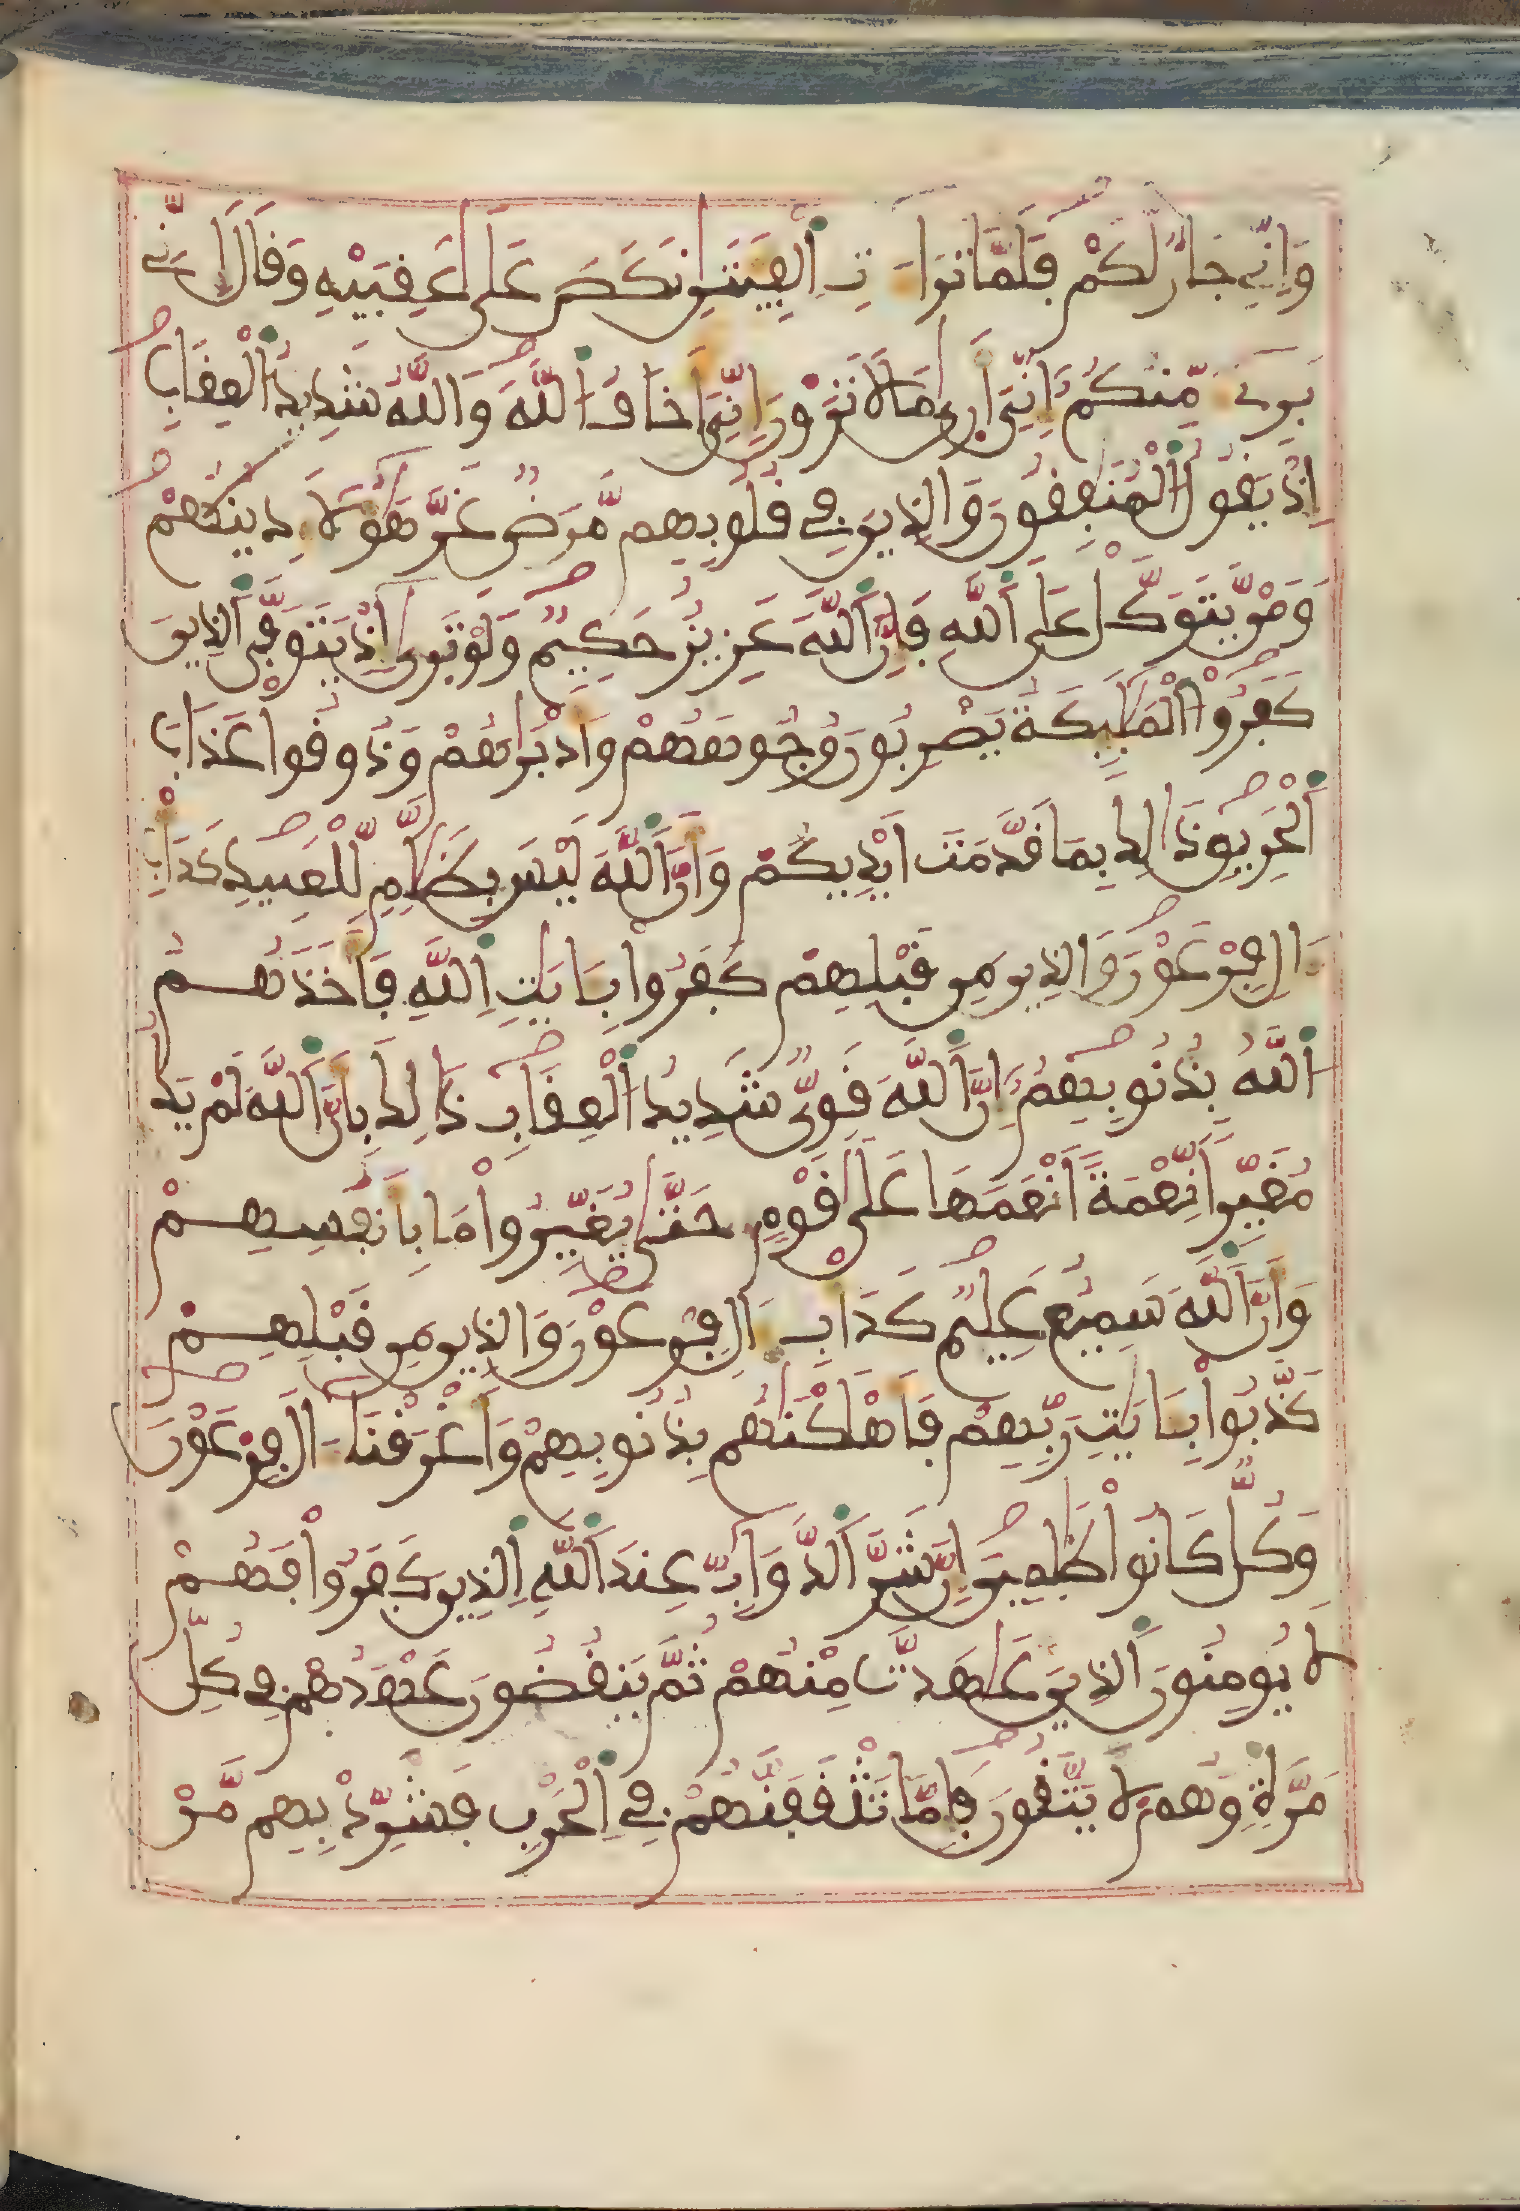 وَإِنِّے جَارٌ لَّكُمْ فَلَمَّا تَرَآءَتِ اِلْفِئَتَٰنِ نَكَصَ عَلَىٰ عَقِبَيْهِ وَقَالَ إِنِّے
بَرِےٓءٌ مِّنكُمُۥٓ إِنِّىَ أَر۪ىٰ مَا لَا تَرَوْنَ إِنِّىَ أَخَافُ اُللَّهَ وَاللَّهُ شَدِيدُ اُلْعِقَابِ
إِذْ يَقُولُ اُلْمُنَٰفِقُونَ وَالذِينَ فِے قُلُوبِهِم مَّرَضٌ غَرَّ هَٰٓؤُلَآءِ دِينُهُمْ
وَمَنْ يَّتَوَكَّلْ عَلَى اَللَّهِ فَإِنَّ اَللَّهَ عَزِيزٌ حَكِيمٌ وَلَوْ تَر۪ىٰٓ إِذْ يَتَوَفَّى اَلذِينَ
كَفَرُواْ اُلْمَلَٰٓئِكَةُ يَضْرِبُونَ وُجُوهَهُمْ وَأَدْبَٰرَهُمْ وَذُوقُواْ عَذَابَ
اَلْحَرِيقِ ذَٰلِكَ بِمَا قَدَّمَتَ اَيْدِيكُمْ وَأَنَّ اَللَّهَ لَيْسَ بِظَلَّٰمٍ لِّلْعَبِيدِ كَدَأْبِ
ءَالِ فِرْعَوْنَ وَالذِينَ مِن قَبْلِهِمْ كَفَرُواْ بِـَٔايَٰتِ اِللَّهِ فَأَخَذَهُمُ
اُللَّهُ بِذُنُوبِهِمُۥٓ إِنَّ اَللَّهَ قَوِىٌّ شَدِيدُ اُلْعِقَابِ ذَٰلِكَ بِأَنَّ اَللَّهَ لَمْ يَكُ
مُغَيِّراً نِّعْمَةً اَنْعَمَهَا عَلَىٰ قَوْمٍ حَتَّىٰ يُغَيِّرُواْ مَا بِأَنفُسِهِمْ
وَأَنَّ اَللَّهَ سَمِيعٌ عَلِيمٌ كَدَأْبِ ءَالِ فِرْعَوْنَ وَالذِينَ مِن قَبْلِهِمْ
كَذَّبُواْ بِـَٔايَٰتِ رَبِّهِمْ فَأَهْلَكْنَٰهُم بِذُنُوبِهِمْ وَأَغْرَقْنَآ ءَالَ فِرْعَوْنَ
وَكُلٌّ كَانُواْ ظَٰلِمِينَ إِنَّ شَرَّ اَلدَّوَآبِّ عِندَ اَللَّهِ اِلذِينَ كَفَرُواْ فَهُمْ
لَا يُومِنُونَ اَلذِينَ عَٰهَدتَّ مِنْهُمْ ثُمَّ يَنقُضُونَ عَهْدَهُمْ فِے كُلِّ
مَرَّةٍ وَهُمْ لَا يَتَّقُونَ فَإِمَّا تَثْقَفَنَّهُمْ فِے اِلْحَرْبِ فَشَرِّدْ بِهِم مَّنْ